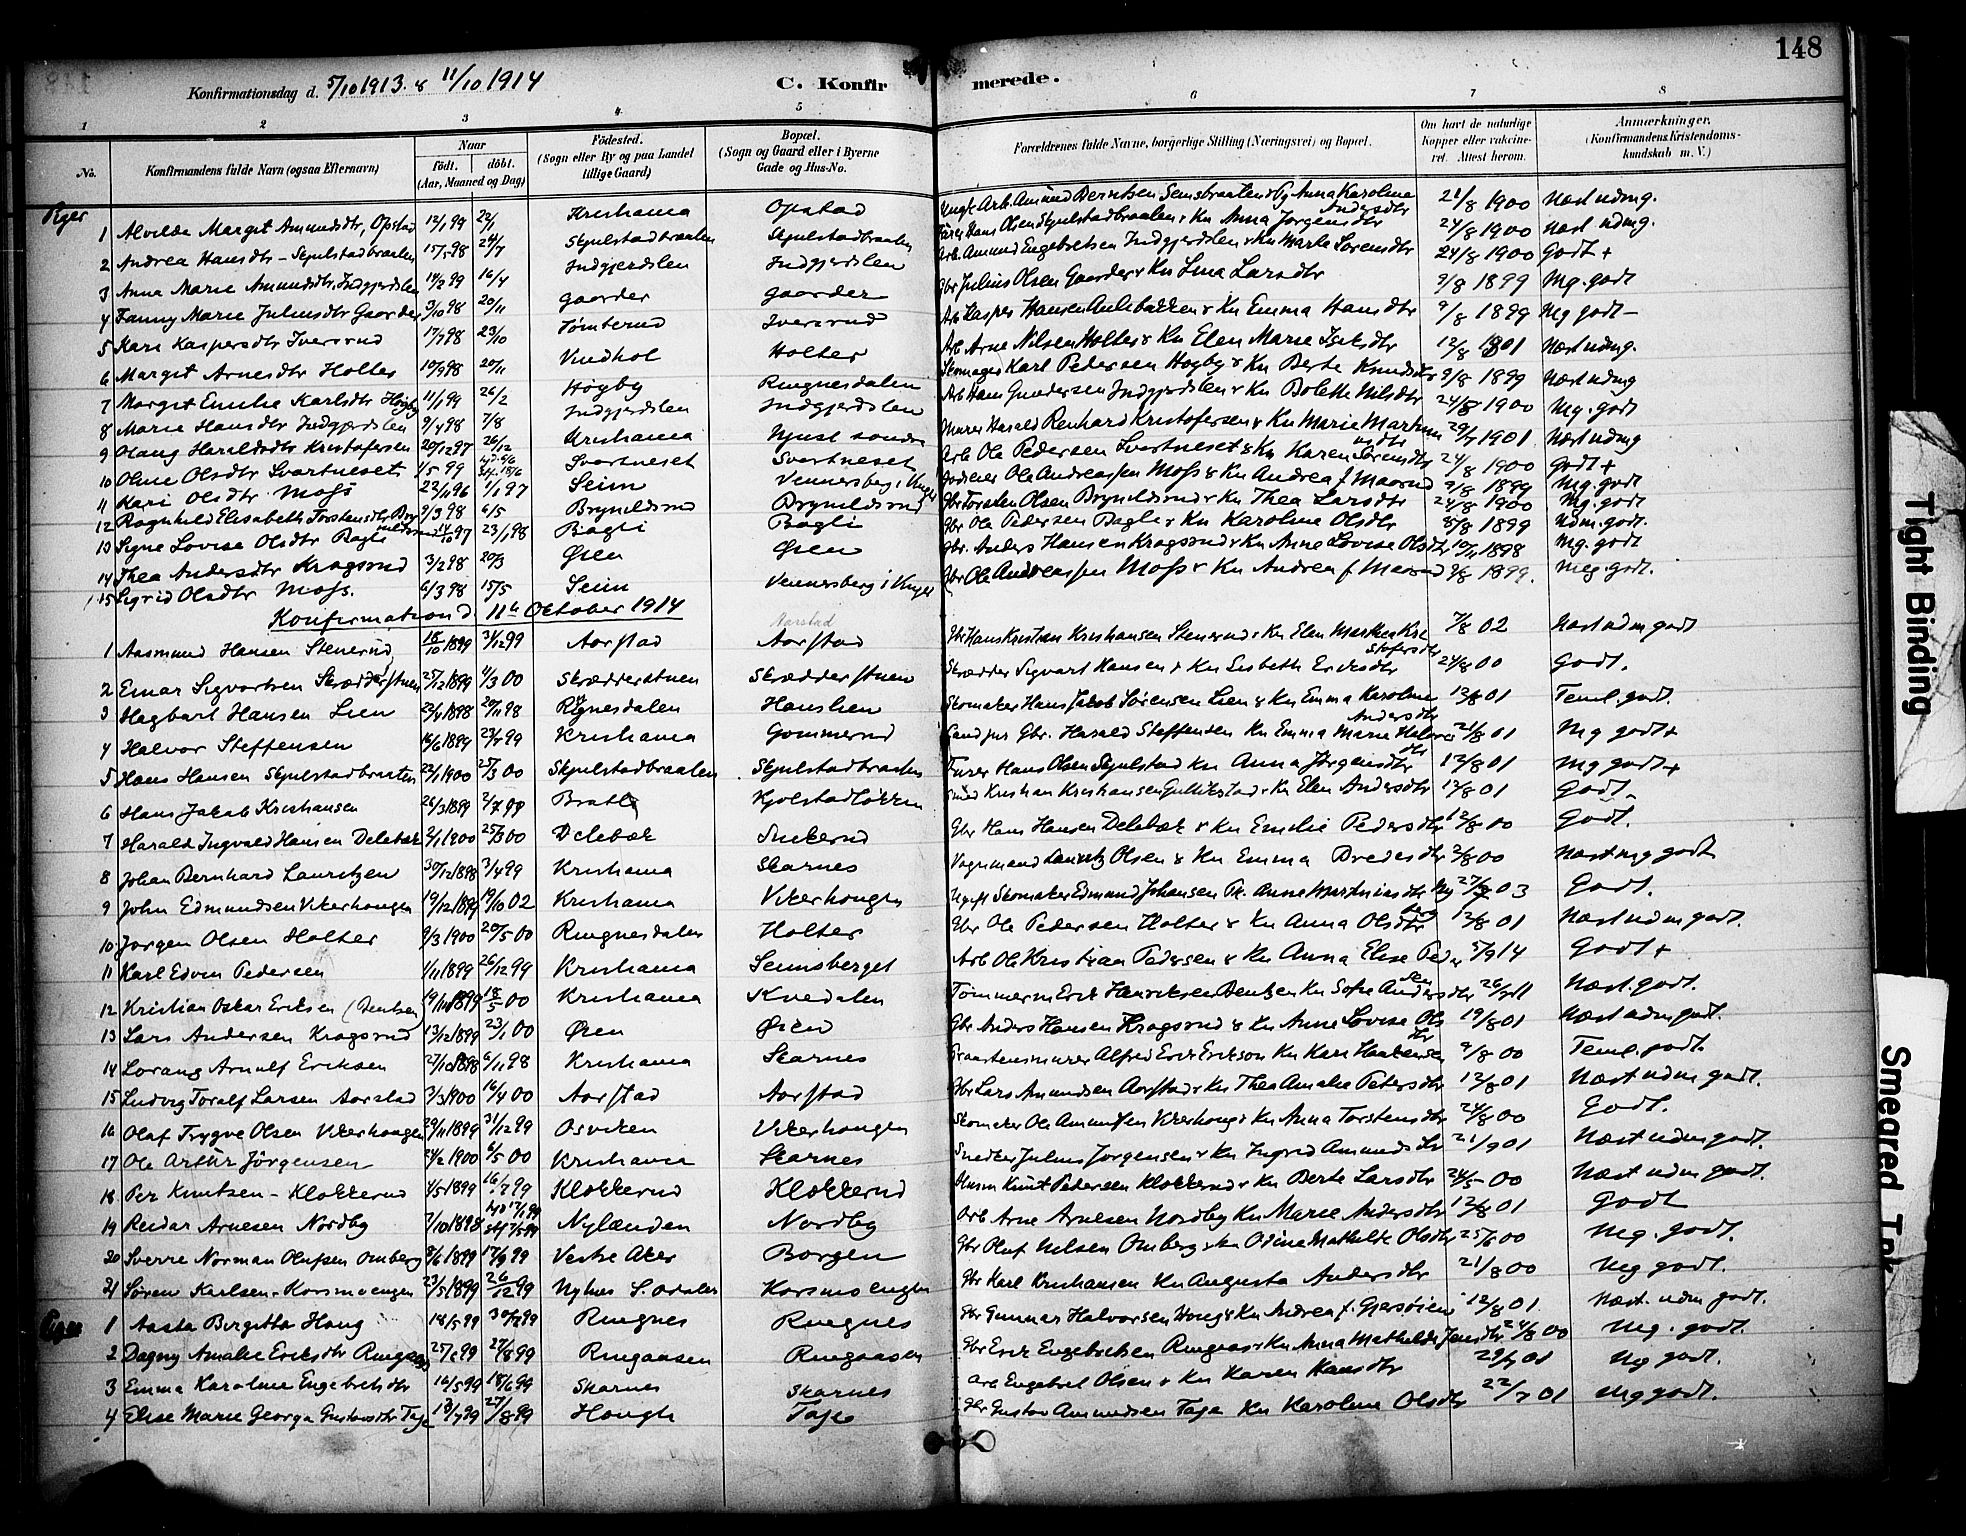 148
Konfirmationsdag d. 5/10 1913 & 11/10 1914 C. Konfirmerede.
1 2 3 4 5 6 7 8
No. Konfirmandens fulde Navn (ogsaa Efternavn) Naar født. døbt. (Aar, Maaned og Dag) Fødested. (Sogn eller By og paa Landet tillige Gaard) Bopæl. (Sogn og Gaard eller i Byerne Gade og Hus-No. Forældrenes fulde Navne, borgerlige Stilling (Næringsvei) og Bopæl. Om havt de naturlige Kopper eller vaccineret. Attest herom. Anmærkninger. (Konfirmandens Kristendomskundskab m. V.)
Piger
1 Alvilde Margit Amundsdtr, Opstad 12/1 99 22/1 Kristiania Opstad 21/8 1900 Næst udmg.
2 Andrea Hansdtr - Skjulstadbraaten 15/5 98 24/7 Skjulstadbraaten Skjulstadbraaten 24/8 1900 Næst udmg.
3 Anna Marie Amundsdtr, Indgjerdslen 14/2 99 16/4 Indgjerdslen Indgjerdslen Arb Amund Engebretsen Indgjerdslen & Ku Marte Sorensdtr 24/8 1900 Godt +
4 Fanny Marie Juliusdtr Gaarder 3/10 98 20/11 Gaarder Gaarder Gbr Julius Olsen Gaarder & Ku Lina Larsdtr 9/8 1899 Mg. godt
5 Kari Kaspersdtr Iversrud 17/7 98 23/10 Tømterud Iversrud Arb Kasper Hansen & Ku Emma Hansdtr 9/8 1899 Mg godt -
6 Margit Arnesdtr Holter 10/9 98 20/11 Vindhol Holter Arb Arne Nilsen Holter & Ku Elen Marie 12/8 1901 Næst udmg.
7 Margit Emilie Karlsdtr Høgby 11/1 99 26/2 Høgby Ringnesdalen Skomager Karl Pedersen Høgby & Ku Berte Knudsdtr 9/8 1899 Næst udmg
8 Marie Hansdtr Indgjerdslen 9/4 98 7/8 Indgjerdslen Indgjerdslen Arb Hans Gundersen Indgjerdslen & Ku Bolette Nilsdtr 24/8 1900 Mg. godt
9 Olaug Haraldsdtr Kristofersen 20/12 97 26/12 Kristiania Murer Harald Renhard Kristofersen & Ku Marie 29/7 1901 Næst udmg
10 Oline Olsdtr Svartneset 1/5 99 Svartneset Svartneset Arb Ole Pedersen Svartneset & Ku Karen Sorensdtr 24/8 1900 Godt +
11 Kari Olsdtr Moss 22/11 96 1/1 97 Seim Vennersberg i Vinger Ole Andreassen Moss & Ku Andrea f. Maarud 9/8 1899 Mg. godt
12 Ragnhild Elisabeth Torstensdtr Brynildsrud 9/3 98 6/5 Brynildsrud Brynildsrud Gbr Torsten Olsen Brynildsrud & Ku Thea Larsdtr 24/8 1900 Mg. godt
13 Signe Lovise Olsdtr Bagli 97 23/1 98 Bagli Bagli Gbr Ole Pedersen Bagli & Ku Karoline Olsdtr 1899 Udm. godt.
14 Thea Andersdtr Kragsrud 3/2 98 20/3 Øien Øien Gbr. Anders Hansen Kragsrud & Ku Anne Lovise Olsdtr 1898 Mg. godt
15 Sigrid Olsdtr Moss. 6/3 98 15/5 Seim Vennersberg i Vinger Gbr Ole Andreassen Moss & Ku Andrea f Maarud 9/8 1899. Meg. godt.
Konfirmation d. 11te October 1914 Aarstad
1 Aasmund Hansen Stenerud 18/10 1899 31/12 99 Aarstad Aarstad Gbr Hans Kristian Kristiansen Stenerud & Ku Elen Marthea Kristofersdtr 7/8 02 Næst udm godt
2 Einar Sigvartsen Skrædderstuen 25/12 1899 4/3 00 Skrædderstuen Skrædderstuen Skrædder Sigvart Hansen & Ku Lisbeth Eriksdtr 24/8 00 Godt.
3 Hagbart Hansen Lien 1898 20/11 98 Ringnesdalen Hanslien Skomaker Hans Jakob Sørensen Lien & Ku Emma Karoline Andersdtr 13/8 01 Teml. godt.
4 Halvor Steffensen 16/6 1899 23/7 99 Kristiania Gommerud Cand jur Gbr. Harald Steffensen Ku Emma Marie 21/8 01 Mg godt +
5 Hans Hansen Skjulstadbraaten 22/1 1900 25/3 00 Skjulstadbraaten Skjulstadbraaten Hans Olsen Skjulstad Ku Anna Jørgensdtr 12/8 01 Mg godt +
6 Hans Jakob Kristiansen 26/3 1899 2/7 99 Bratli Kjolstadløkken Kristian Kristiansen & Ku Elen Andersdtr 12/8 01 Godt.
7 Harald Ingvald Hansen Delebæk 2/1 1900 25/3 00 Delebæk Snekerud Gbr Hans Hansen Delebæk & Ku Emilie Pedersdtr 12/8 00 Godt.
8 Johan Bernhard Lauritzen 30/12 1898 3/4 99 Kristiania Skarnes Vognmand Lauritz Olsen & Ku Emma Bredesdtr 2/8 00 Næst mg godt
9 John Edmundsen Vikerhaugen 19/12 1899 19/10 02 Kristiania Vikerhaugen Ugift Skomaker Edmund Johansen Pk. Anne 03 Godt.
10 Jørgen Olsen Holter 9/3 1900 20/5 00 Ringnesdalen Holter Gbr Ole Pedersen Holter & Ku Anna Olsdtr 12/8 01 Næst udm godt.
11 Karl Edvin Pedersen 1/11 1899 26/12 99 Kristiania Semsberget Arb Ole Kristian Pedersen & Ku Anna Elise Pedersen 5/9 14 Godt +
12 Kristian Oskar Eriksen (Bentsen 19/11 1899 18/5 00 Kristiania Knedalen Tømmerm Erik Henriksen Bentsen Ku Sofie Andersdtr 11 Næst. godt.
13 Lars Andersen Kragsrud 13/12 1899 23/1 00 Øien Øien Gbr Anders Hansen Kragsrud & Ku Anne Lovise Olsdtr 19/8 01 Næst udm godt.
14 Lorang Arnulf Eriksen 27/10 1898 6/11 98 Kristiania Skarnes Graastensmurer Alfred Erik Erikson Ku Kari Haakensen 9/8 00 Teml. godt.
15 Ludvig Toralf Larsen Aarstad 3/3 1900 16/4 00 Aarstad Aarstad Gbr Lars Amundsen Aarstad & Ku Thea Amalie Petersdtr 12/8 01 Næst udm godt.
16 Olaf Trygve Olsen Vikerhaugen 29/11 1899 31/12 99 Osviken Vikerhaugen Skomaker Ole Amundsen Vikerhaug & Ku Anna Torstensdtr 24/8 00 Godt.
17 Ole Artur Jørgensen 24/2 1900 6/5 00 Kristiania Skarnes Snedker Julius Jørgensen & Ku Ingrid Amundsdtr 21/9 01 Næst udm godt.
18 Per Knutsen - Klokkerud 4/5 1899 16/7 99 Klokkerud Klokkerud Husm Knut Petersen Klokkerud & Ku Berte Larsdtr 00 Næst udm godt.
19 Reidar Arnesen Nordby 7/10 1898 Nylænden Nordby Arb Arne Arnesen Nordby Ku Marie Andersdtr 12/8 01 Godt
20 Sverre Norman Olufsen Omberg 8/6 1899 17/9 99 Vestre Aker Borgen Gbr Oluf Nilsen Omberg & Ku Odine Mathilde Olsdtr 25/6 00 Meg. godt.
21 Søren Karlsen - Korsmoengen 23/5 1899 26/12 99 Nylnes S. Odalen Korsmoengen Gbr Karl Kristiansen Ku Augusta Andersdtr 21/8 00 Meg godt.
Piger 1 Aasta Birgitte Haug 18/5 99 30/7 99 Ringnes Ringnes Gbr Gunnar Halvorsen Haug & Ku Andrea f. Gjersøien 12/8 01 Næst. udm godt.
2 Dagny Amalie Eriksdtr Ringaas 99 27/8 99 Ringaasen Ringaasen Gbr Erik Engebretsen Ringaas & Ku Anna Mathilde Jensdtr 24/8 00 Meg. godt.
3 Emma Karoline Engebretsdtr 16/5 99 18/6 99 Skarnes Skarnes Arb Engebret Olsen & Ku Karen Hansdtr 29/7 01 Mg godt.
4 Elise Marie Georga Gustavsdtr Taje 13/7 99 27/8 99 Haugli Taje Gbr Gustav Amundsen Taje Ku Karoline Olsdtr 22/7 01 Mg godt.
Tight Binding
Smeared Ink